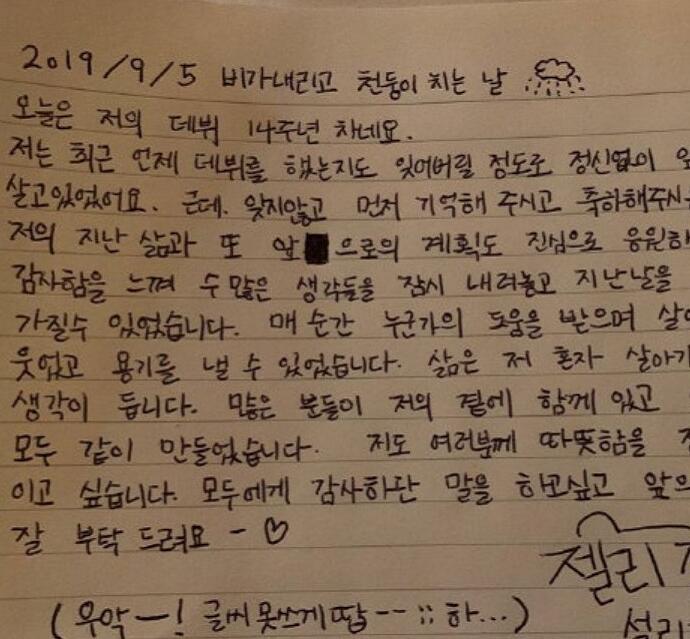 2019/9/5 비가내리고 천둥이 치는 날
오늘은 저의 데뷔 14주년 차네요.
저는 최근 언제 데뷔를 했는지도 잊어버릴 정도로 정신없이
살고있었어요. 근데. 잊지않고 먼저 기억해 주시고 축하해주시
저의 지난 삶과 또 앞으로의 계획도 진심으로 응원하
감사함을 느껴 수많은 생각들을 잠시 내려놓고 지난날을
가질수 있었습니다. 매 순간 누군가의 도움을 받으며 살
웃었고 용기를 낼 수 있었습니다. 삶은 저 혼자 살아가
생각이 듭니다. 많은 분들이 저의 곁에 함께 있고
모두 같이 만들었습니다. 저도 여러분께 따뜻함을
이고 싶습니다. 모두에게 감사하단 말을 하고싶고 앞으
잘 부탁 드려요 - ♡
젤리
(우악ㅡ! 글씨 못쓰게땁-- ;; 하...)
설리